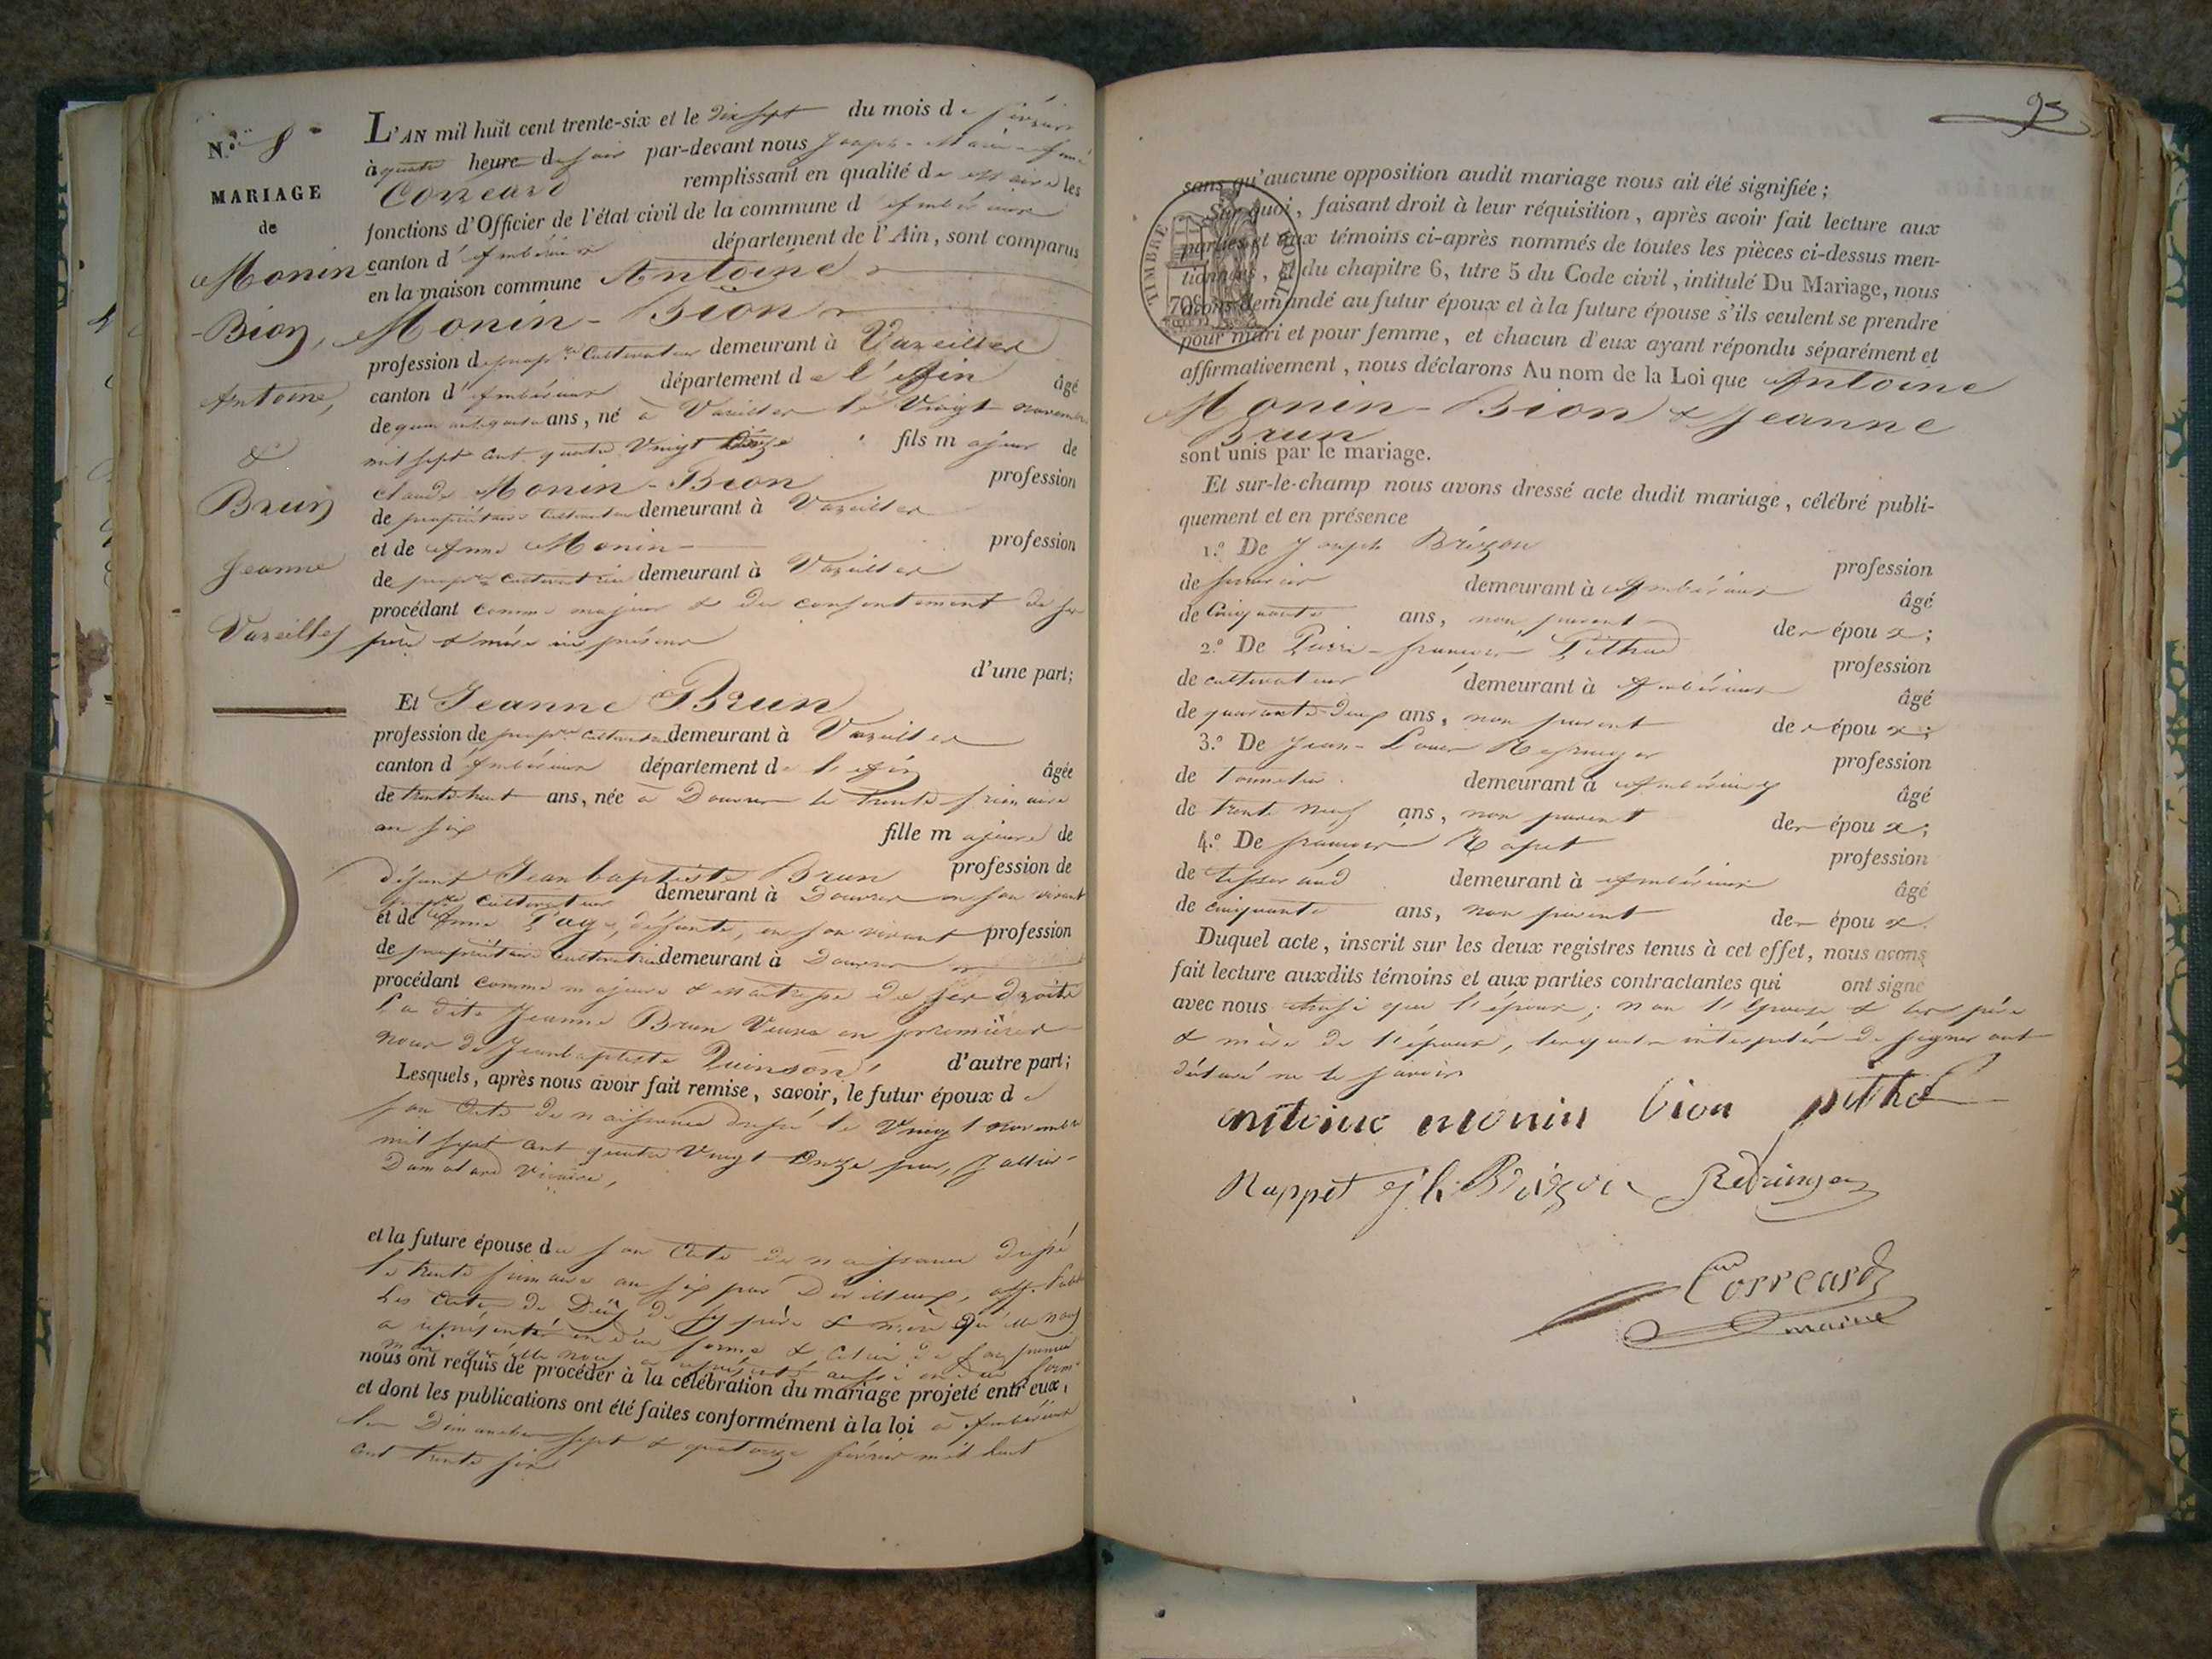 N.o 8
MARIAGE
de
Monin
-Bion,
Antoine,
&
Brun
Jeanne
Vareilles
L'AN mil huit cent trente-six et le dix sept du mois de février
à quatre heure du soir par-devant nous Joseph-Marie-
Correard remplissant en qualité de maire les
fonctions d'Officier de l'état civil de la commune d'Ambérieux
canton d'Ambérieux département de l'Ain, sont comparus
en la maison commune Antoine
Monin-Bion
profession de propre cultivateur demeurant à Vareilles
canton d'Ambérieux département de l'Ain âgé
de quarante quatre ans, né à Vareilles le Vingt novembre
mil sept cent quatre Vingt Onze fils majeur de
claude Monin-Bion profession
de propriétaire cultivateur demeurant à Vareilles
et de Anne Monin profession
de propre cultivatrice demeurant à Vareilles
procédant comme majeur & du consentement de ses
père & mère ici présens
d'une part;
Et Jeanne Brun
profession de propre cultivatrice demeurant à Vareilles
canton d'Ambérieux département de l'Ain âgée
de trente huit ans, née à Douvres le trente frimaire
an six fille majeure de
défunt Jean baptiste Brun profession de
propre cultivateur demeurant à Douvres en son vivant
et de Anne Page, défunte, en son vivant profession
de propriétaire cultivatrice demeurant à Douvres
procédant comme majeure & maitresse de ses droits
La dite Jeanne Brun Veuve en premières
noces de Jeanbaptiste Quinson, d'autre part;
Lesquels, après nous avoir fait remise, savoir, le futur époux de
son Acte de naissance dressé le Vingt novembre
mil sept cent quatre Vingt Onze par,
vicaire,
et la future épouse de son Acte de naissance dressé
le trente frimaire an six par
les Actes de Décès de ses père & mère qu'elle nous
a représenté en due forme & celui de son premier
mari qu'elle nous a représenté aussi en due forme
nous ont requis de procéder à la célébration du mariage projeté entr'eux,
et dont les publications ont été faites conformément à la loi à Ambérieux
les Dimanches sept & quatorze février mil huit
cent trente six
93
sans qu'aucune opposition audit mariage nous ait été signifiée;
Sur quoi, faisant droit à leur réquisition, après avoir fait lecture aux
parties et aux témoins ci-après nommés de toutes les pièces ci-dessus men-
tionnées, et du chapitre 6, titre 5 du Code civil, intitulé Du Mariage, nous
avons demandé au futur époux et à la future épouse s'ils veulent se prendre
pour mari et pour femme, et chacun d'eux ayant répondu séparément et
affirmativement, nous déclarons Au nom de la Loi que Antoine
Monin-Bion & Jeanne
Brun
sont unis par le mariage.
TIMBRE ROYAL
70c
Et sur-le-champ nous avons dressé acte dudit mariage, célébré publi-
quement et en présence
1.o De Joseph Brizon profession
de serrurier demeurant à Ambérieux âgé
de Cinquante ans, non parent des époux;
2.o De Pierre-françois Pithod profession
de cultivateur demeurant à Ambérieux âgé
de quarante-deux ans, non parent des époux;
3.o De Jean-Louis profession
de tonnelier demeurant à Ambérieux âgé
de trente neuf ans, non parent des époux;
4.o De françois Rapet profession
de tisserand demeurant à Ambérieux âgé
de cinquante ans, non parent des époux.
Duquel acte, inscrit sur les deux registres tenus à cet effet, nous avons
fait lecture auxdits témoins et aux parties contractantes qui ont signé
avec nous ainsi que l'époux; non l'épouse & les père
& mère de l'époux, lesquels interpelés de signer ont
déclaré ne le savoir
antoine monin bion pithod
Rappet Jh Brizon
Correard
maire